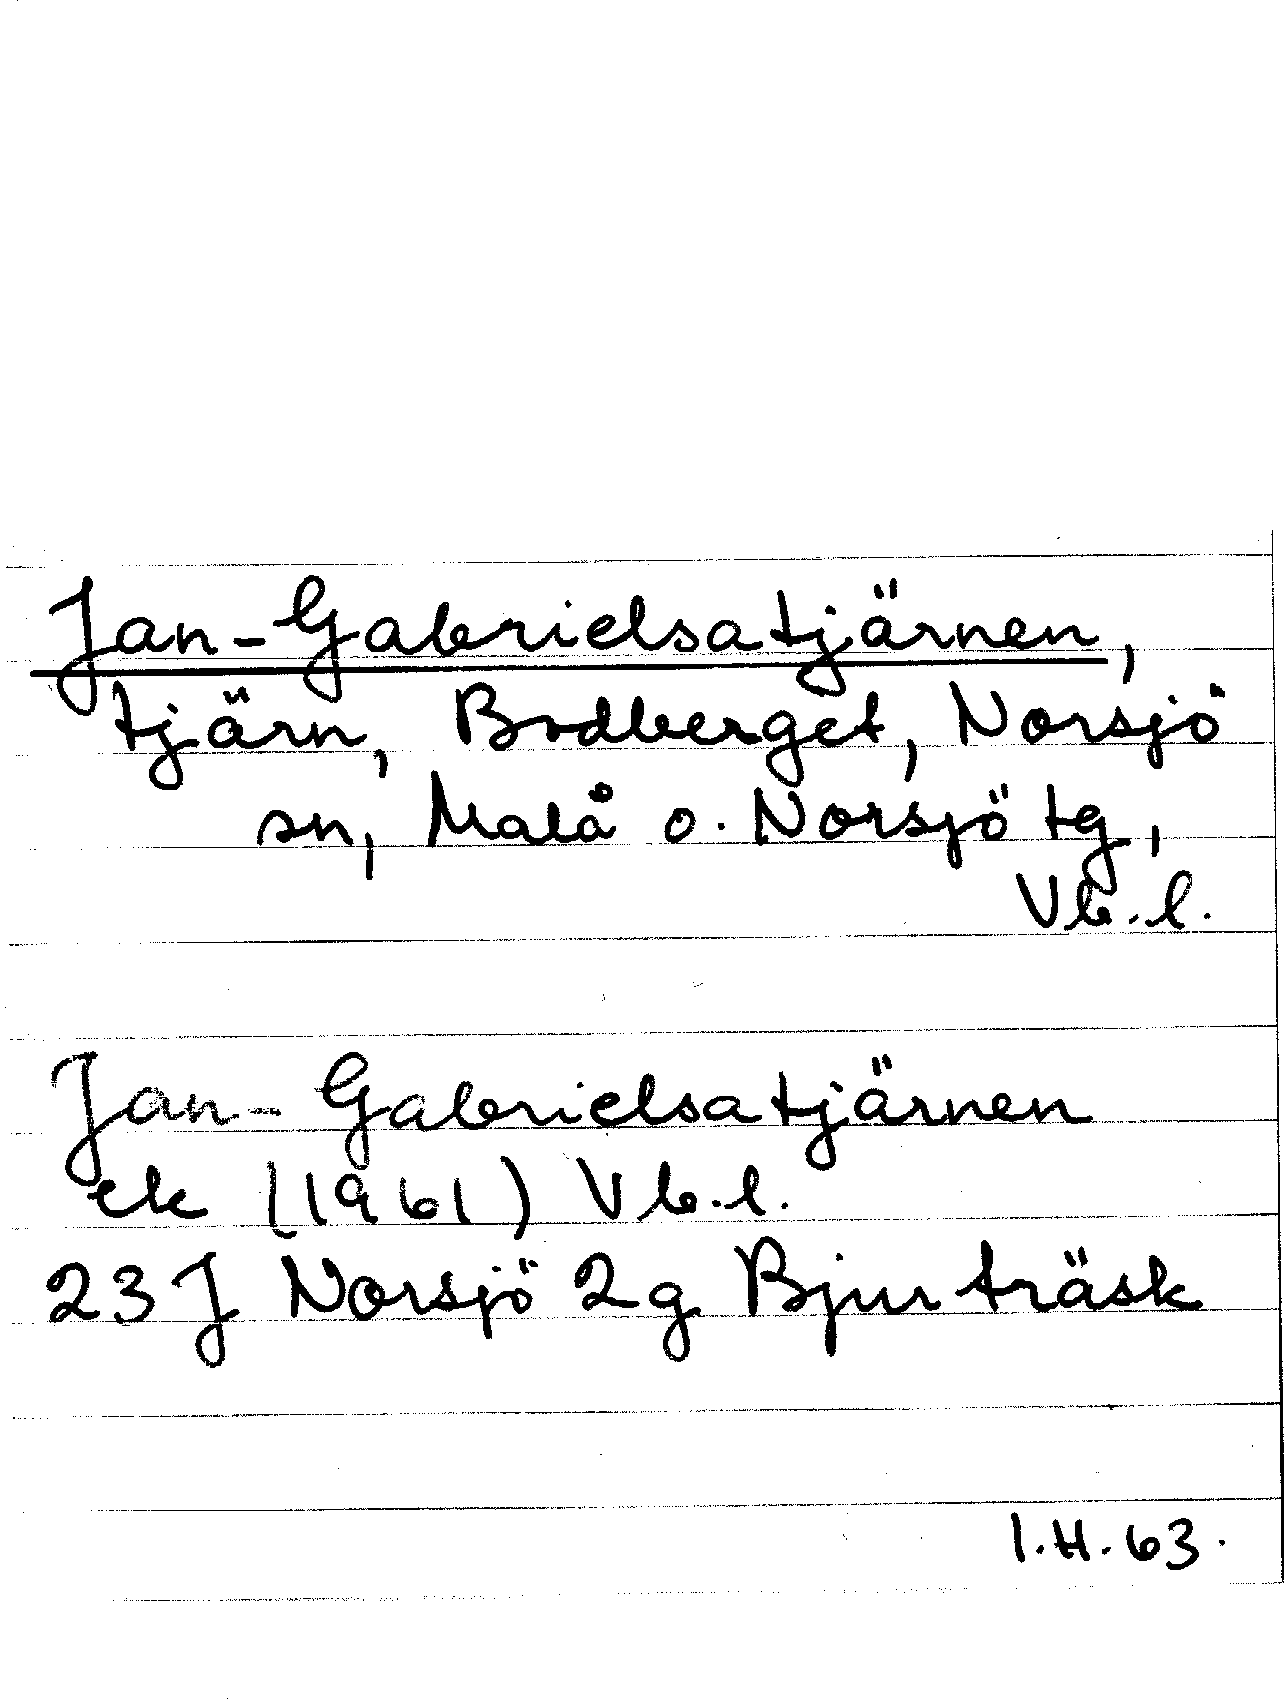 Jan-Gabrielsatjärnen,
tjärn, Bodberget, Norsjö
sn, Malå o. Norsjö tg,
Vb.l.
Jan-Gabrielsatjärnen
ek (1961) Vb.l.
23J Norsjö 2g Bjurträsk
I.H. 63.